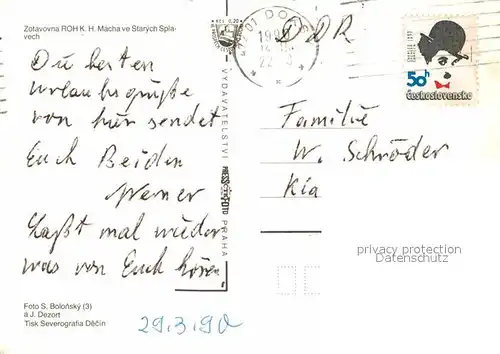 Zotavovna ROH K. H. Mácha ve Starých Spla-
vech
Du besten
Urlaubsgrüße
von hier sendet
Euch Beiden
Werner
Laßt mal wieder
was von Euch hören
Foto S. Boloňský (3)
a J. Dezort
Tisk Severografia Děčín
29.3.90
VYDAVATELSTVÍ PRESSFOTO PRAHA
01 DOKSY
DDR
50h
Československo
Familie
W. Schröder
Kia
privacy protection
Datenschutz